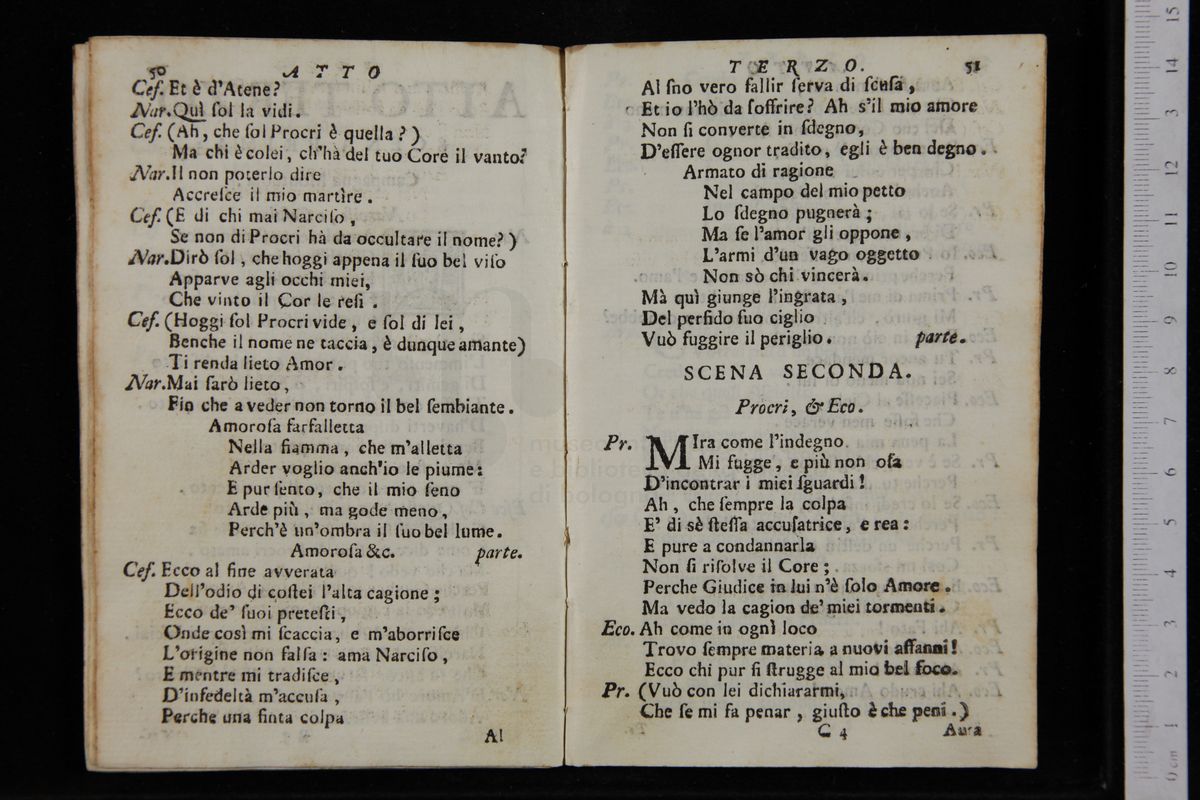 50 ATTO
Cef. Et è d'Atene?
Nar. Quì ſol la vidi.
Cef. (Ah, che ſol Procri è quella?)
Ma chi è colei, ch'hà del tuo Core il vanto?
Nar. Il non poterlo dire
Accreſce il mio martìre.
Cef. (E di chi mai Narciſo,
Se non di Procri hà da occultare il nome?)
Nar. Dirò ſol, che hoggi appena il ſuo bel viſo
Apparve agli occhi miei,
Che vinto il Cor le reſi.
Cef. (Hoggi ſol Procri vide, e ſol di lei,
Benche il nome ne taccia, è dunque amante)
Ti renda lieto Amor.
Nar. Mai ſarò lieto,
Fin che a veder non torno il bel ſembiante.
Amoroſa farfalletta
Nella fiamma, che m'alletta
Arder voglio anch'io le piume:
E pur ſento, che il mio ſeno
Arde più, ma gode meno,
Perch'è un'ombra il ſuo bel lume.
Amoroſa &c. parte.
Cef. Ecco al fine avverata
Dell'odio di coſtei l'alta cagione;
Ecco de' ſuoi preteſti,
Onde così mi ſcaccia, e m'aborriſce
L'origine non falſa: ama Narciſo,
E mentre mi tradiſce,
D'infedeltà m'accuſa,
Perche una finta colpa
Al
TERZO. 51
Al ſno vero fallir ſerva di ſcuſa,
Et io l'hò da ſoffrire? Ah s'il mio amore
Non ſi converte in ſdegno,
D'eſſere ognor tradito, egli è ben degno.
Armato di ragione
Nel campo del mio petto
Lo ſdegno pugnerà;
Ma ſe l'amor gli oppone,
L'armi d'un vago oggetto
Non sò chi vincerà.
Mà quì giunge l'ingrata,
Del perfido ſuo ciglio
Vuò fuggire il periglio. parte.
SCENA SECONDA.
Procri, & Eco.
Pr. MIra come l'indegno
Mi fugge, e più non oſa
D'incontrar i miei ſguardi!
Ah, che ſempre la colpa
E' di sè ſteſſa accuſatrice, e rea:
E pure a condannarla
Non ſi riſolve il Core;
Perche Giudice in lui n'è ſolo Amore.
Ma vedo la cagion de' miei tormenti.
Eco. Ah come in ognì loco
Trovo ſempre materia a nuovi affanni!
Ecco chi pur ſi ſtrugge al mio bel foco.
Pr. (Vuò con lei dichiararmi,
Che ſe mi fa penar, giuſto è che peni.)
C 4 Aura